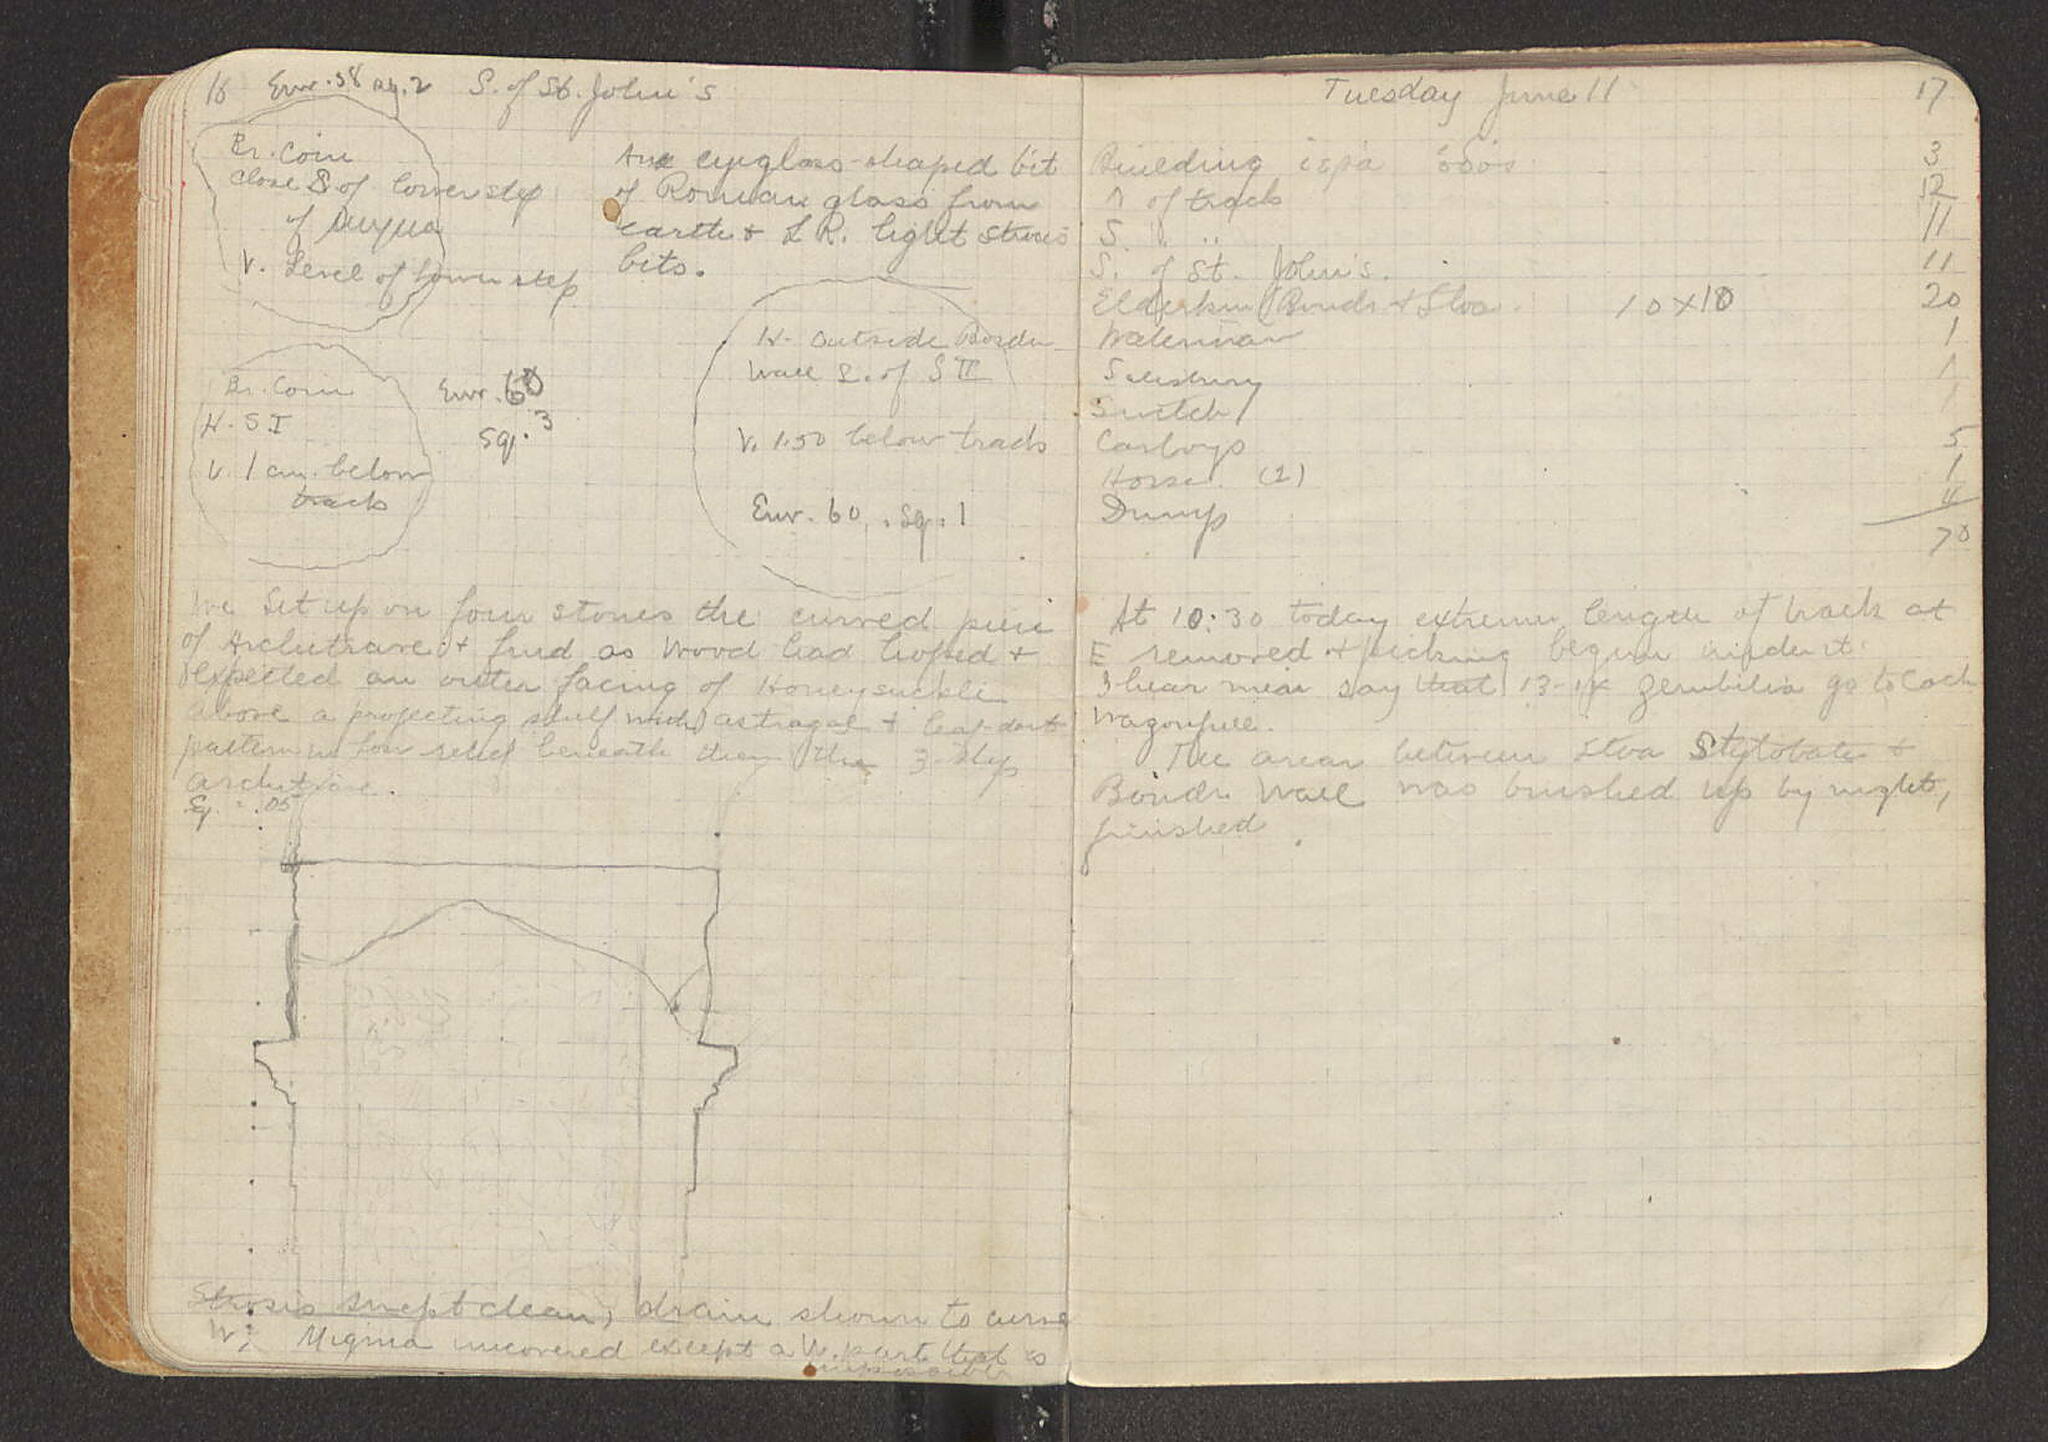 16 Env. 58 sq. 2 S. of St. John's
Br. Coin
close S of lower step
of
V. Level of lower step
eyeglass-shaped bit
of Roman glass from
earth & L R. light stosis
bits.
Br. Coin
H. S. I
V. 1 cm. below
track
Env. 60
Sq. 3
H. Outside Border
Wall S. of S II
V. 1.50 below track
Env. 60, Sq. 1
We set up on four stones the curved piece
of Architrave & find as Wood had hoped &
expected an outer facing of Honeysuckle
above a projecting shelf with astragal & leaf-dart
pattern in low relief beneath them the 3-step
architrave.
Sq. = .05
Stosis swept clean, drain shown to curve
W; Migma uncovered except a W. part that is
impossible
Tuesday June 11 17
Building 3
N of track 12
S. " " 11
S. of St. John's. 11
Elderkin (Boudr & Stoa. 10 x 10 20
Waterman 1
Salisbury 1
Switch 1
Carboys 5
Horse (2) 1
Dump 4
70
At 10:30 today extreme length of track at
E removed & picking begun under it.
I hear men say that 13-14 zembilia go to each
wagonfull.
The area between Stoa Stylobate &
Boudr. Wall was brushed up by night,
finished.